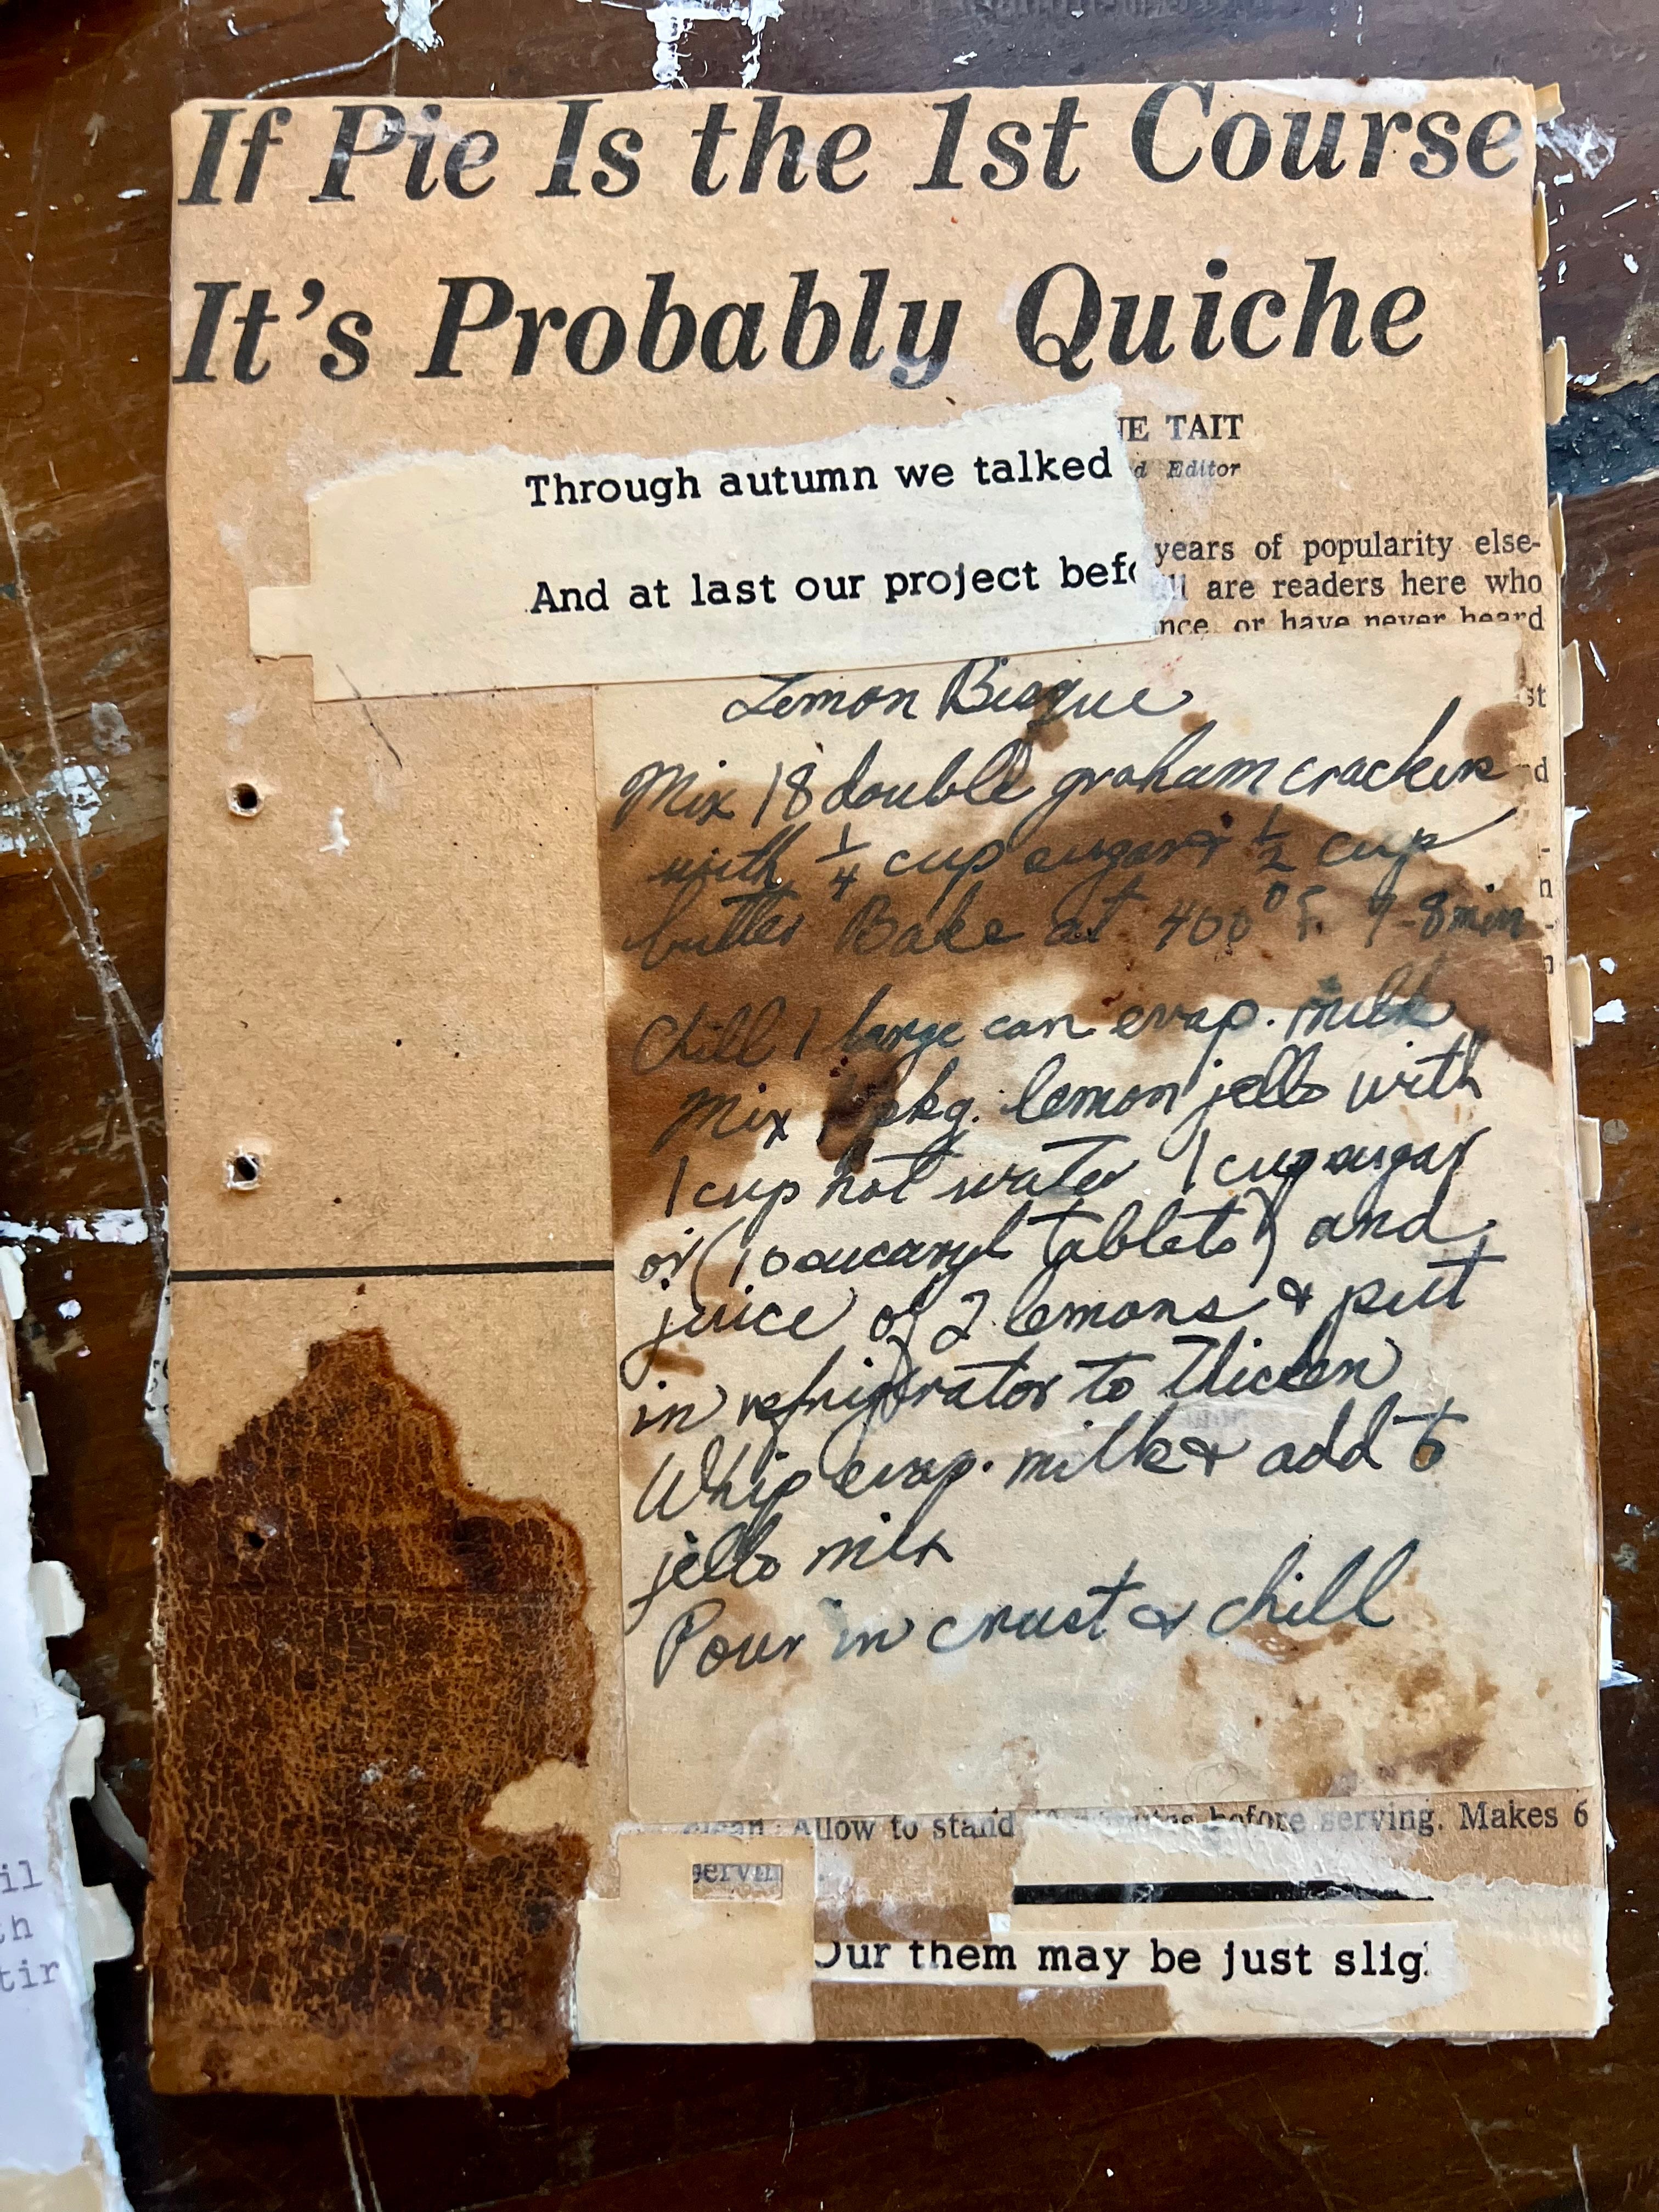 If Pie Is the 1st Course
It's Probably Quiche
NE TAIT
d Editor
Through autumn we talked
And at last our project befo
years of popularity else-
all are readers here who
nce, or have never heard
st
Lemon Bisque
Mix 18 double graham crackers
nd
with 1/4 cup sugar & 1/2 cup
butter Bake at 400°F. 7-8 min
Chill 1 large can evap. milk
Mix 1 pkg. lemon jello with
1 cup hot water 1 cup sugar
or (10 sucaryl tablets) and
juice of 2 lemons & put
in refrigerator to thicken
Whip evap. milk & add to
jello mix
Pour in crust & chill
clean. Allow to stand 10 minutes before serving. Makes 6
servin
Our them may be just slig
il
th
tir